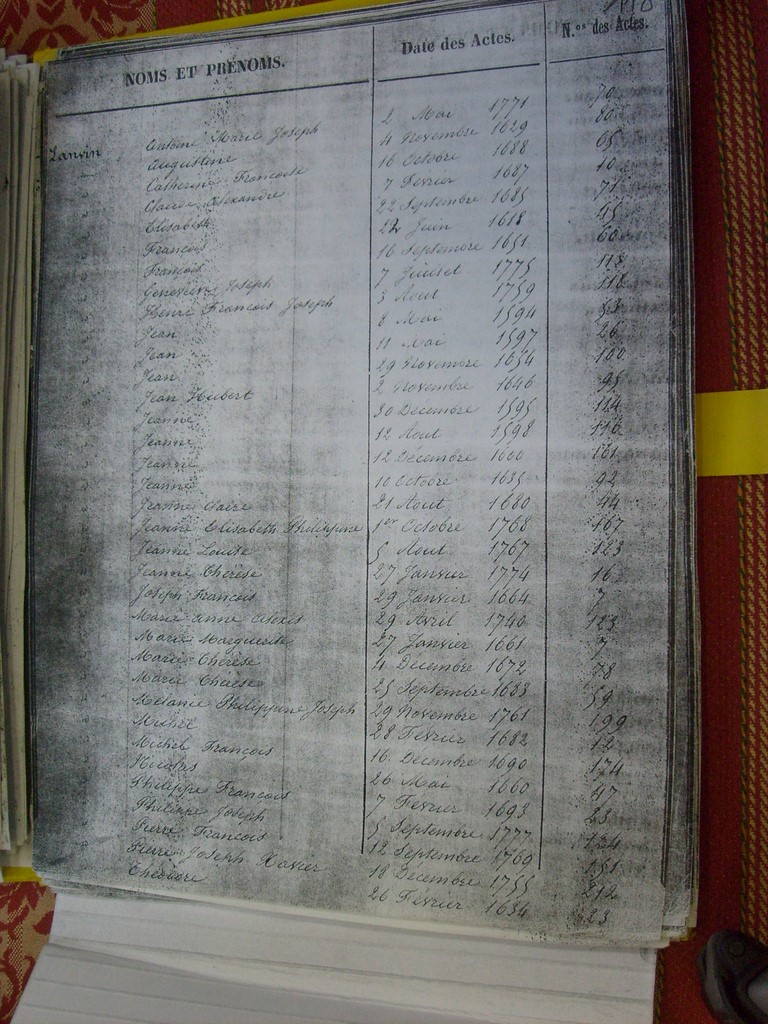 NOMS ET PRÉNOMS. Date des Actes. N.os des Actes.
Lanvin Antoine Marie Joseph 2 Mai 1771 70
Augustine 4 Novembre 1629 80
Catherine Francoise 16 Octobre 1688 65
Claire Alexandre 7 Fevrier 1687 10
Elisabeth 22 Septembre 1685 71
Francois 22 Juin 1618 45
Francois 16 Septembre 1651 60
Genevieve Joseph 7 Juillet 1775 113
Henri Francois Joseph 3 Aout 1759 118
Jean 8 Mai 1594 53
Jean 11 Mai 1597 26
Jean 29 Novembre 1654 100
Jean Hubert 2 Novembre 1646 95
Jeanne 30 Decembre 1595 124
Jeanne 12 Aout 1598 116
Jeanne 12 Decembre 1600 161
Jeanne 10 Octobre 1635 92
Jeanne Claire 21 Aout 1680 44
Jeanne Elisabeth Philippine 1er Octobre 1768 167
Jeanne Louise 5 Aout 1767 123
Jeanne Thérèse 27 Janvier 1774 16
Joseph Francois 29 Janvier 1664 7
Marie anne Alexis 29 Avril 1740 123
Marie Marguerite 27 Janvier 1661 7
Marie Thérèse 4 Decembre 1672 78
Marie Thérèse 25 Septembre 1683 59
Mélanie Philippine Joseph 29 Novembre 1761 199
Michel 28 Fevrier 1682 12
Michel François 16 Decembre 1690 174
Nicolas 26 Mai 1660 47
Philippe Francois 7 Fevrier 1693 23
Philippe Joseph 5 Septembre 1777 124
Pierre Francois 12 Septembre 1760 151
Pierre Joseph Xavier 18 Decembre 1755 212
Theodore 26 Fevrier 1634 23